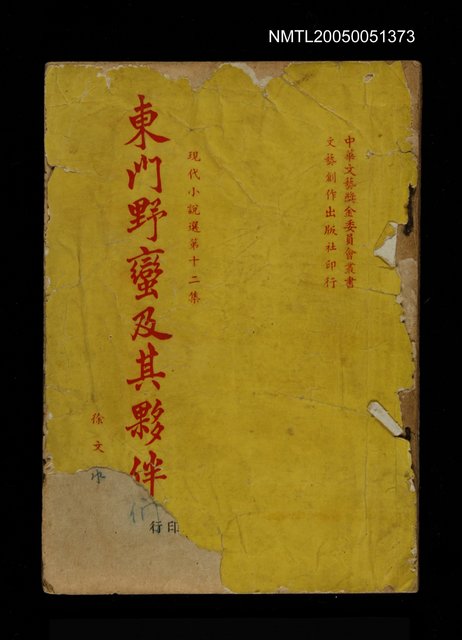 NMTL20050051373
中華文藝獎金委員會叢書
文藝創作出版社印行
現代小說選第十二集
東門野蠻及其夥伴
徐文水
們
印行